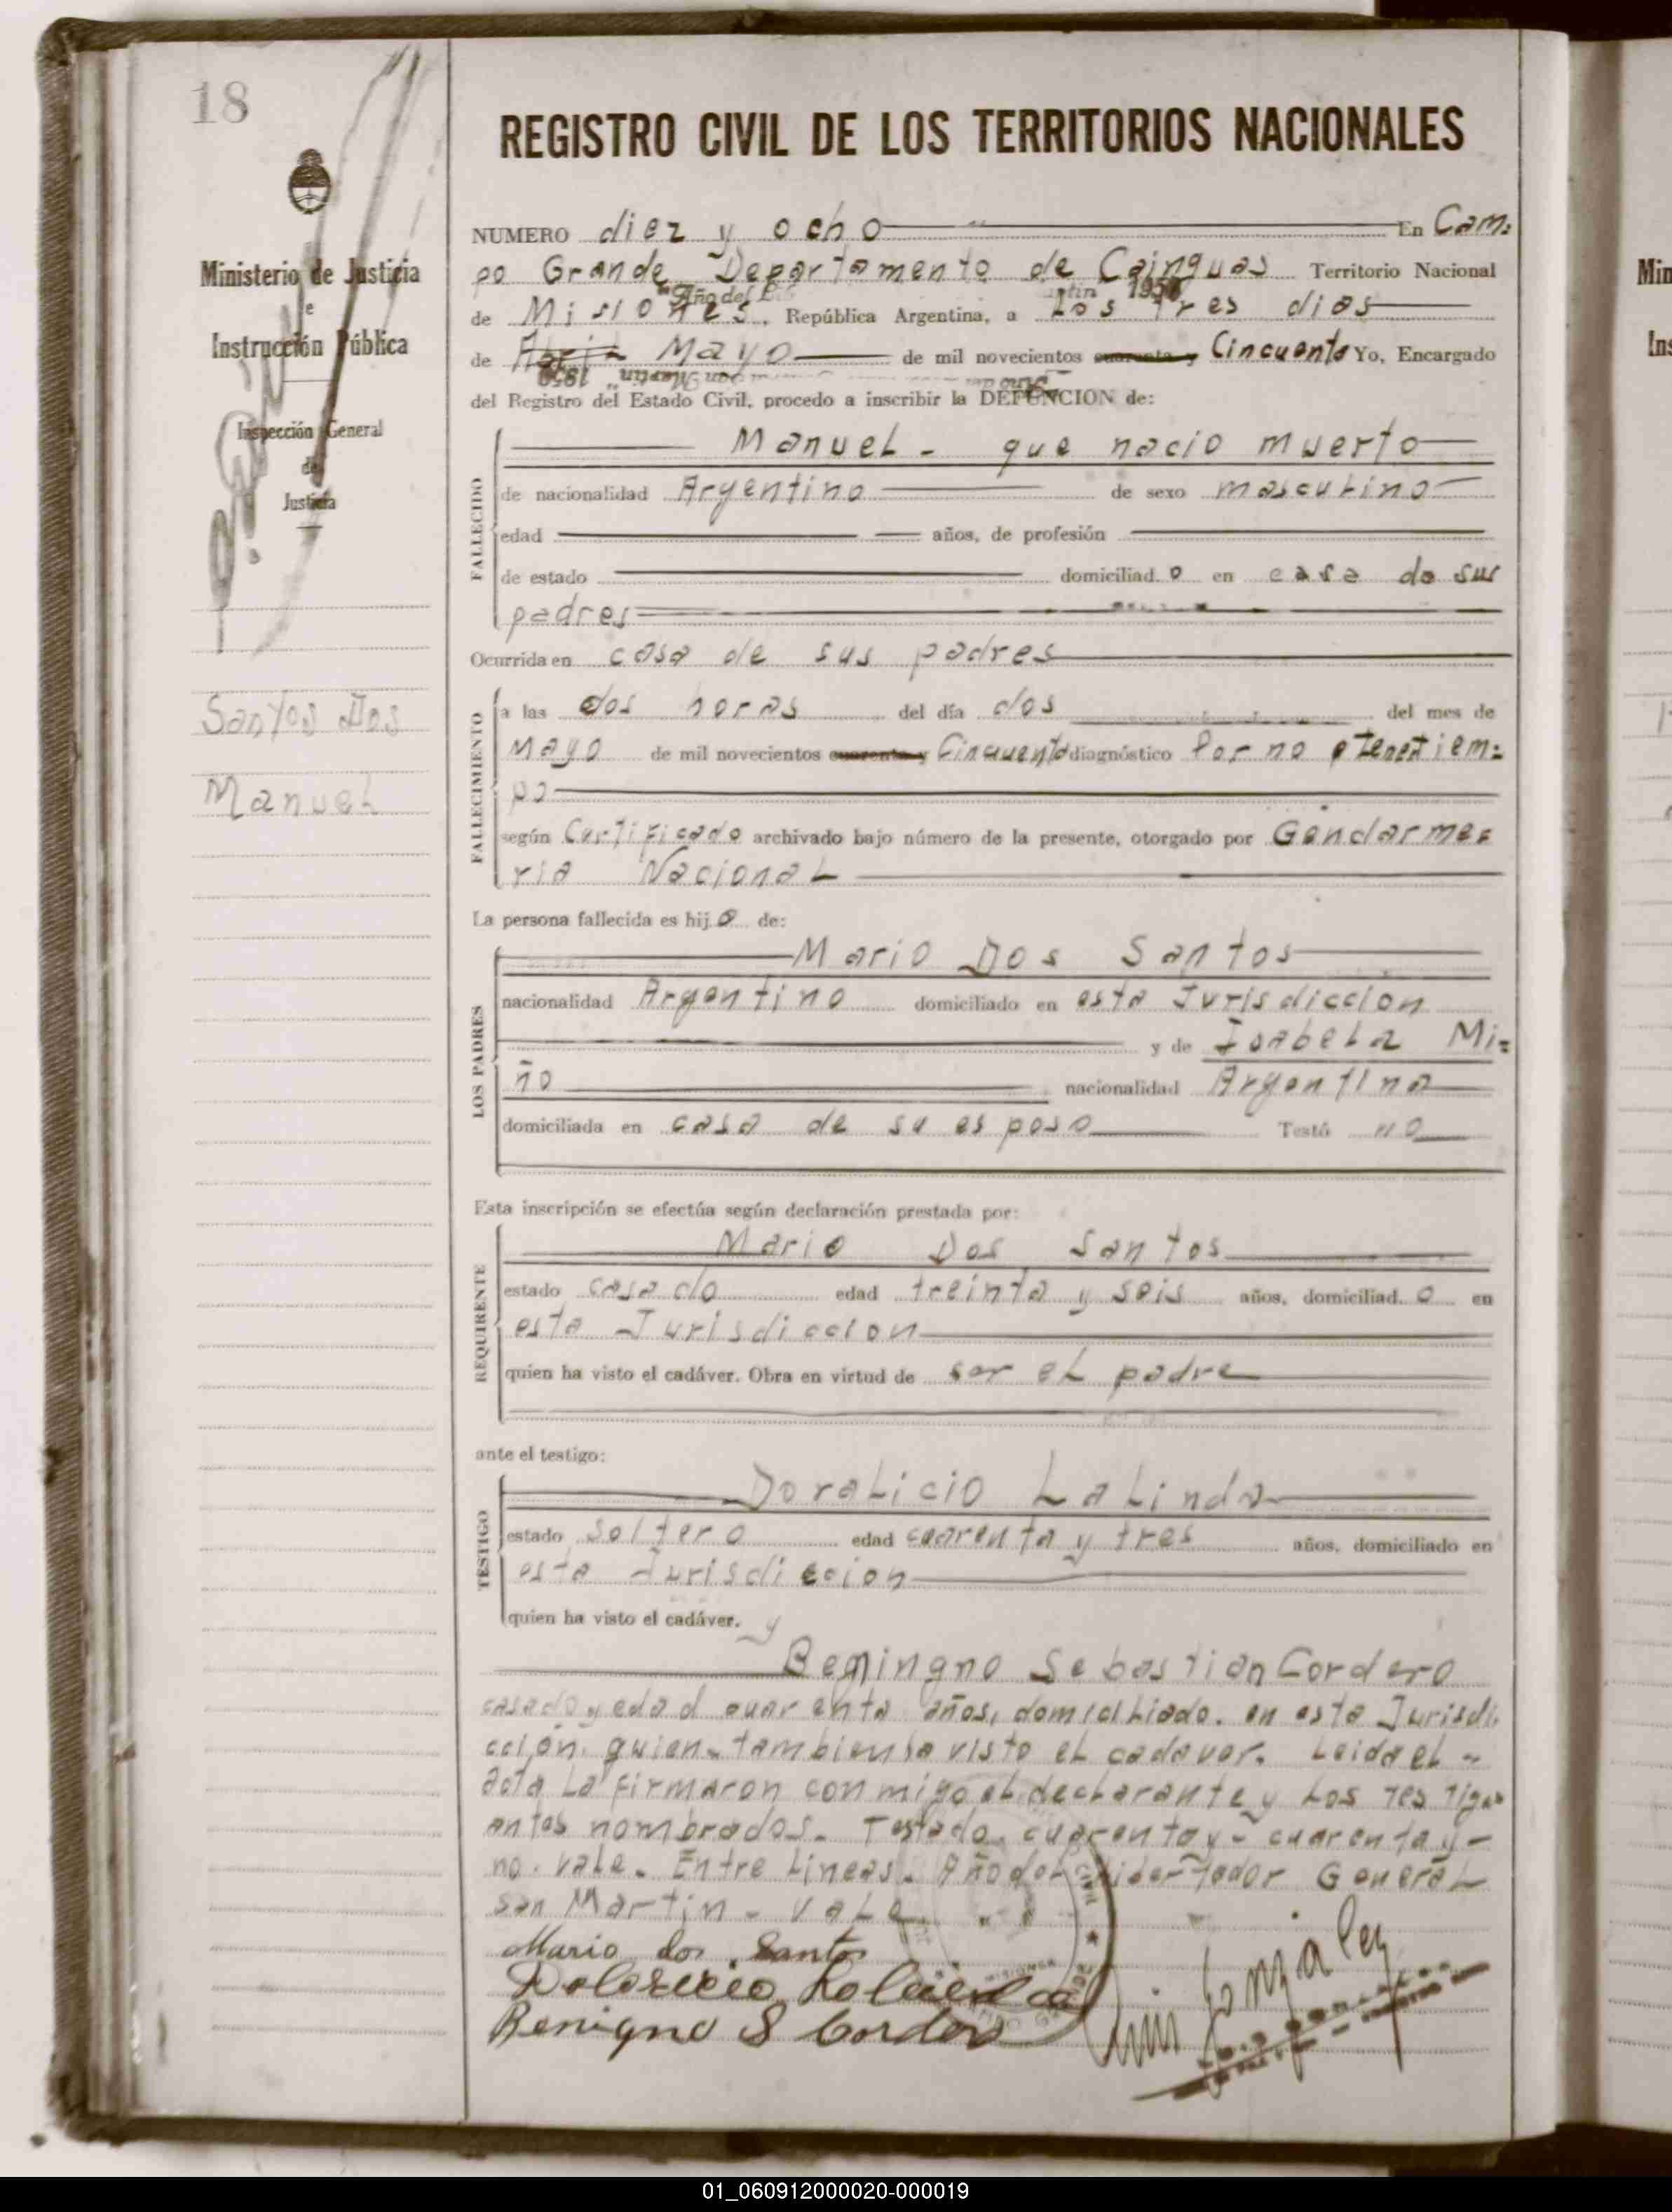 18
Ministerio de Justicia
e
Instrucción Pública
Inspección General
de
Justicia
Santos Dos
Manuel
REGISTRO CIVIL DE LOS TERRITORIOS NACIONALES
NUMERO diez y ocho En Cam=
po Grande Departamento de Cainguas Territorio Nacional
"Año del 1950
de Misiones, República Argentina, a Los tres dias
de Abril Mayo de mil novecientos cuarenta y Cincuenta Yo, Encargado
San Martin" 1950
del Registro del Estado Civil, procedo a inscribir la DEFUNCION de:
FALLECIDO
Manuel - que nacio muerto
de nacionalidad Argentino de sexo masculino
edad años, de profesión
de estado domiciliad o en casa de sus
padres
Ocurrida en casa de sus padres
FALLECIMIENTO
a las dos horas del día dos del mes de
Mayo de mil novecientos cuarenta y Cincuenta diagnóstico Por no tener tiem=
po
según Certificado archivado bajo número de la presente, otorgado por Gendarme=
ria Nacional
La persona fallecida es hij o de:
LOS PADRES
Mario Dos Santos
nacionalidad Argentino domiciliado en esta Jurisdiccion
y de Isabela Mi=
ño nacionalidad Argentina
domiciliada en casa de su esposo Testó no
Esta inscripción se efectúa según declaración prestada por:
REQUIRENTE
Mario Dos Santos
estado casado edad treinta y seis años, domiciliad o en
esta Jurisdiccion
quien ha visto el cadáver. Obra en virtud de ser el padre
ante el testigo:
TESTIGO
Doralicio Lalinda
estado soltero edad cuarenta y tres años, domiciliado en
esta Jurisdiccion
quien ha visto el cadáver. y
Beningno Sebastian Cordero
casado y edad cuarenta años, domicilliado. en esta Jurisdi=
ccion. quien tambien a visto el cadaver. Leida el -
acta la firmaron conmigo el declarante y los testigos
antes nombrados. Testado. cuarenta y - cuarenta y -
no. vale. Entre Lineas. Año del Libertador General
San Martin - vale
Mario dos Santos
Benigno S Cordero
Luis Gonzalez
01_060912000020-000019